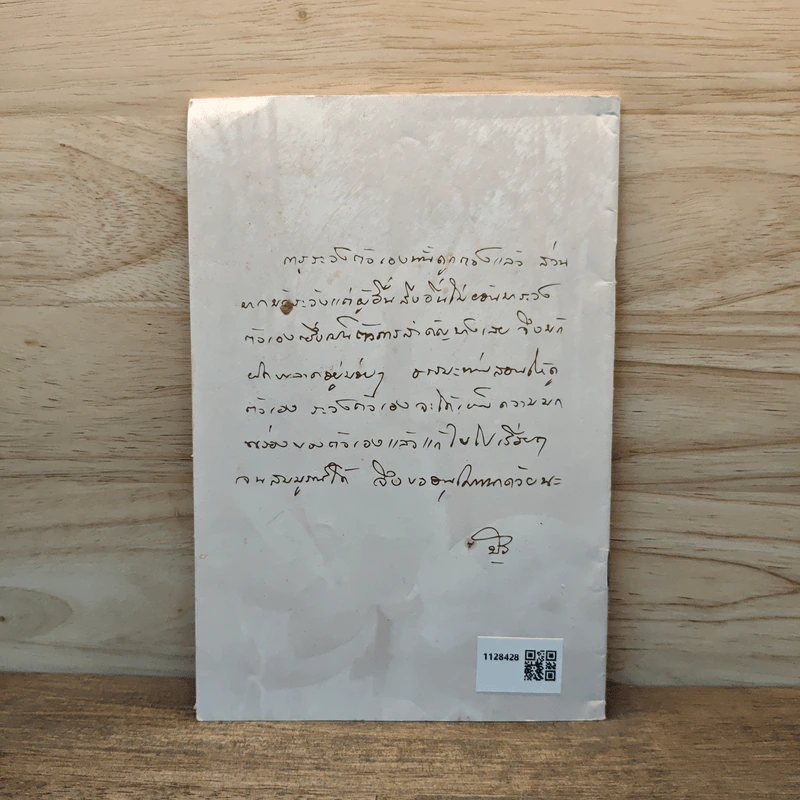 การระวังตัวเองนั้นถูกต้องแล้ว ส่วน
มากมักระวังแต่ผู้อื่น สิ่งอื่นไม่ย้อนมาระวัง
ตัวเองซึ่งเป็นตัวการสำคัญทั้งเลย จึงมัก
ผิดพลาดอยู่บ่อยๆ ธรรมะท่านสอนให้ดู
ตัวเอง ระวังตัวเอง จะได้เห็นความบก
พร่องของตัวเองแล้วแก้ไขไปเรื่อยๆ
จนสมบูรณ์ได้ จึงขออนุโมทนาด้วยนะ
1128428